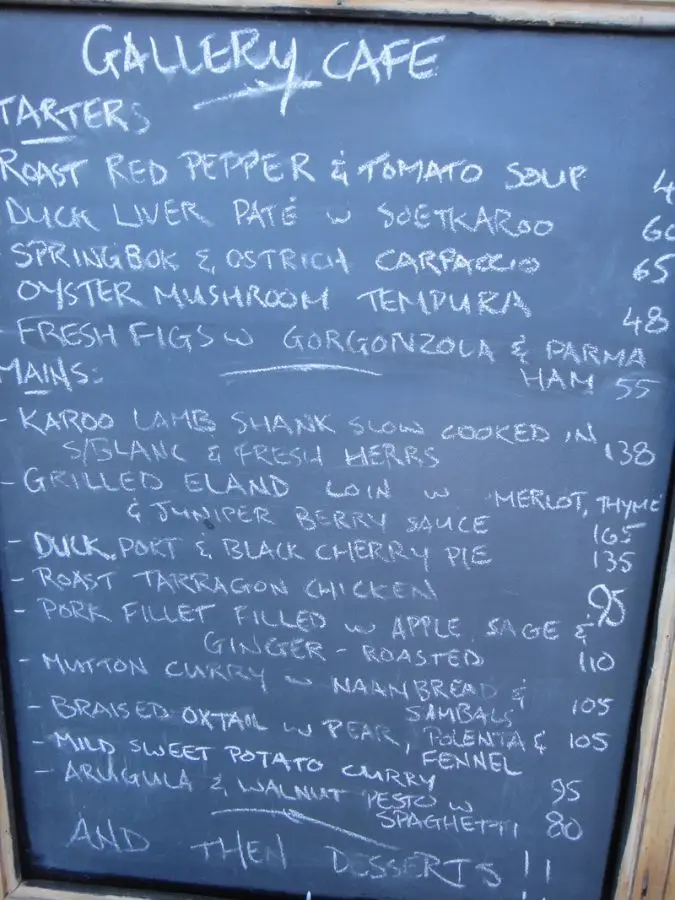 GALLERY CAFE
TARTERS
ROAST RED PEPPER & TOMATO SOUP 4
DUCK LIVER PATÉ W SOETKAROO 60
SPRINGBOK & OSTRICH CARPACCIO 65
OYSTER MUSHROOM TEMPURA 48
FRESH FIGS W GORGONZOLA & PARMA
HAM 55
MAINS:
- KAROO LAMB SHANK SLOW COOKED IN
S/BLANC & FRESH HERBS 138
- GRILLED ELAND LOIN W MERLOT, THYME
& JUNIPER BERRY SAUCE 165
- DUCK, PORT & BLACK CHERRY PIE 135
- ROAST TARRAGON CHICKEN 95
- PORK FILLET FILLED W APPLE SAGE &
GINGER - ROASTED 110
- MUTTON CURRY W NAANBREAD &
SAMBALS 105
- BRAISED OXTAIL W PEAR, POLENTA & 105
FENNEL
- MILD SWEET POTATO CURRY 95
- ARUGULA & WALNUT PESTO W
SPAGHETTI 80
AND THEN DESSERTS !!